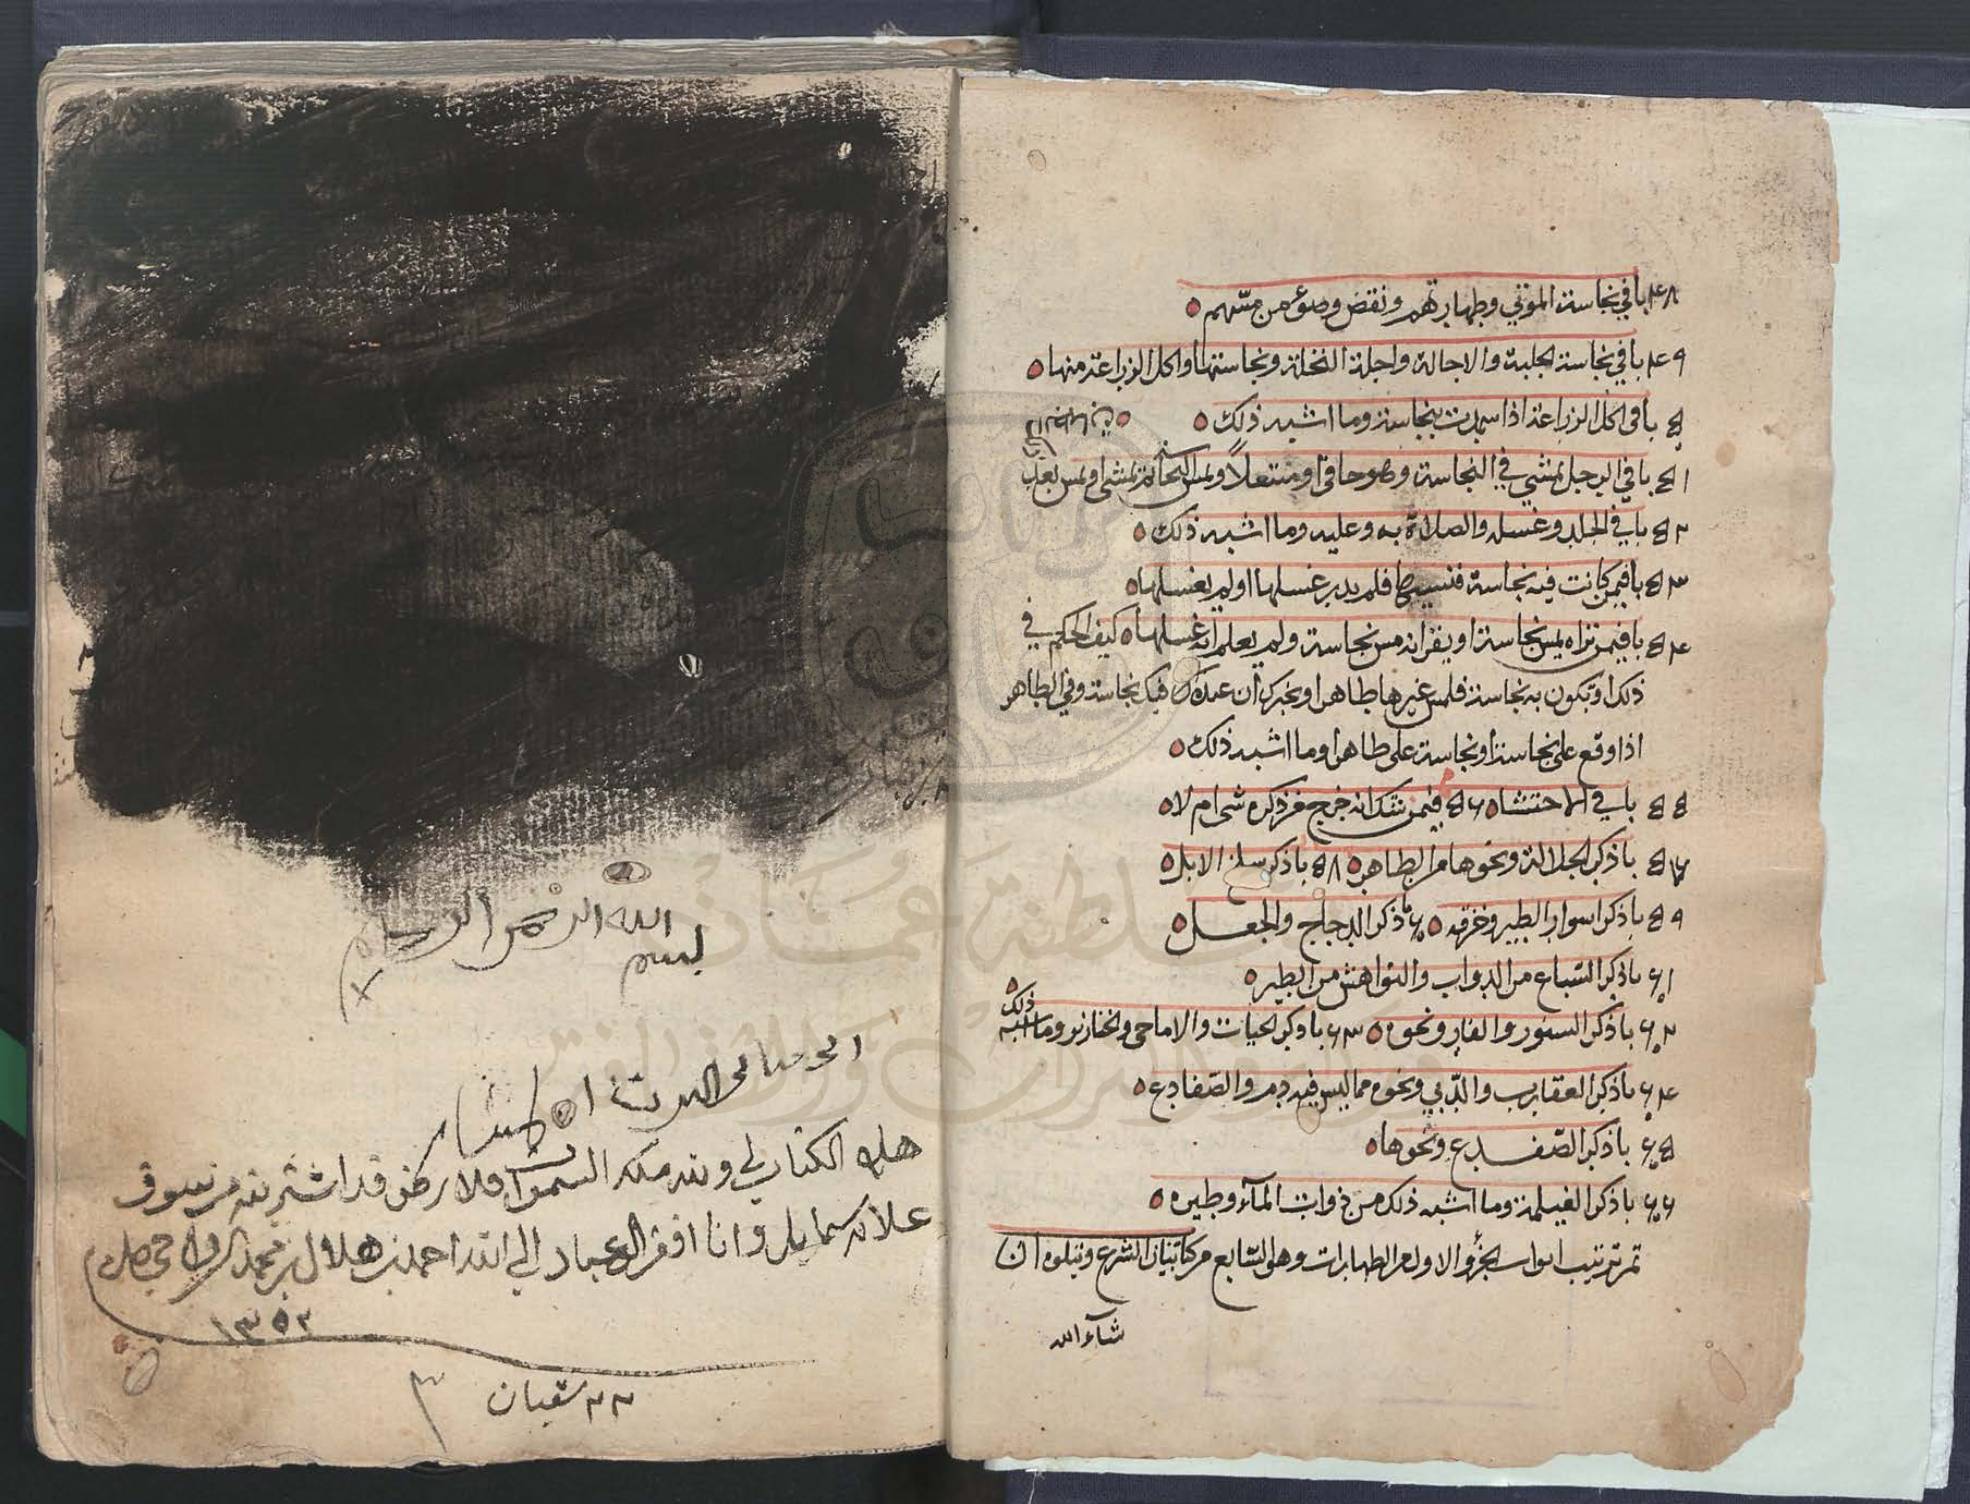 ٤٨ با في نجاسة الموتى وطهارتهم ونقض وضوء من مسهم
٤٩ با في نجاسة الجلبة والاجالة واجلة النخلة ونجاستها واكل الزراعة منها
٥٠ با في اكل الزراعة اذا سمدت بنجاسة وما اشبه ذلك
٥١ با في الرجل يمشي في النجاسة وهو حافي او منتعلا
٥٢ با في الجلد وغسله والصلاة به وعليه وما اشبه ذلك
٥٣ با فيمن كانت فيه نجاسة فنسيها فلم يدر غسلها او لم يغسلها
٥٤ با فيمن تراه يمس نجاسة او يقر انه مس نجاسة ولم يعلم انه غسلها كيف الحكم في
ذلك او تكون به نجاسة فلمس غيرها طاهرا او يخبرك ان عندك فيك نجاسة وفي الطاهر
اذا وقع على نجاسة او نجاسة على طاهر وما اشبه ذلك
٥٥ با في الاحتشاء ٥٦ فيمن شك انه خرج من ذكره شي ام لا
٥٧ با ذكر الجلالة ونحوها من الطاهر ٥٨ با ذكر سلح الابل
٥٩ با ذكر اسوار الطير وخزقه ٦٠ با ذكر الدجاج والجعل
٦١ با ذكر السباع من الدواب والنواهش من الطير
٦٢ با ذكر السنور والفار ونحوه ٦٣ با ذكر الحيات والاماحي والخنازير وما اشبه ذلك
٦٤ با ذكر العقارب والدبي ونحوه مما ليس فيه دم والضفادع
٦٥ با ذكر الضفدع ونحوها
٦٦ با ذكر الغيلمة وما اشبه ذلك من ذوات المآء وطيره
تم ترتيب ابواب الجزؤ الاول من الطهارات وهو السابع من كتاب بيان الشرع ويتلوه ان
شآء الله
بسم الله الرحمن الرحيم
هذا الكتاب لي ولله ملك السموات والارض قد اشتريته من سوق
علاية سمايل وانا افقر العباد الى الله احمد بن هلال بن محمد الرواحي
١٣٥٢
٢٢ شعبان
سلطنة عمان
وزارة التراث والثقافة